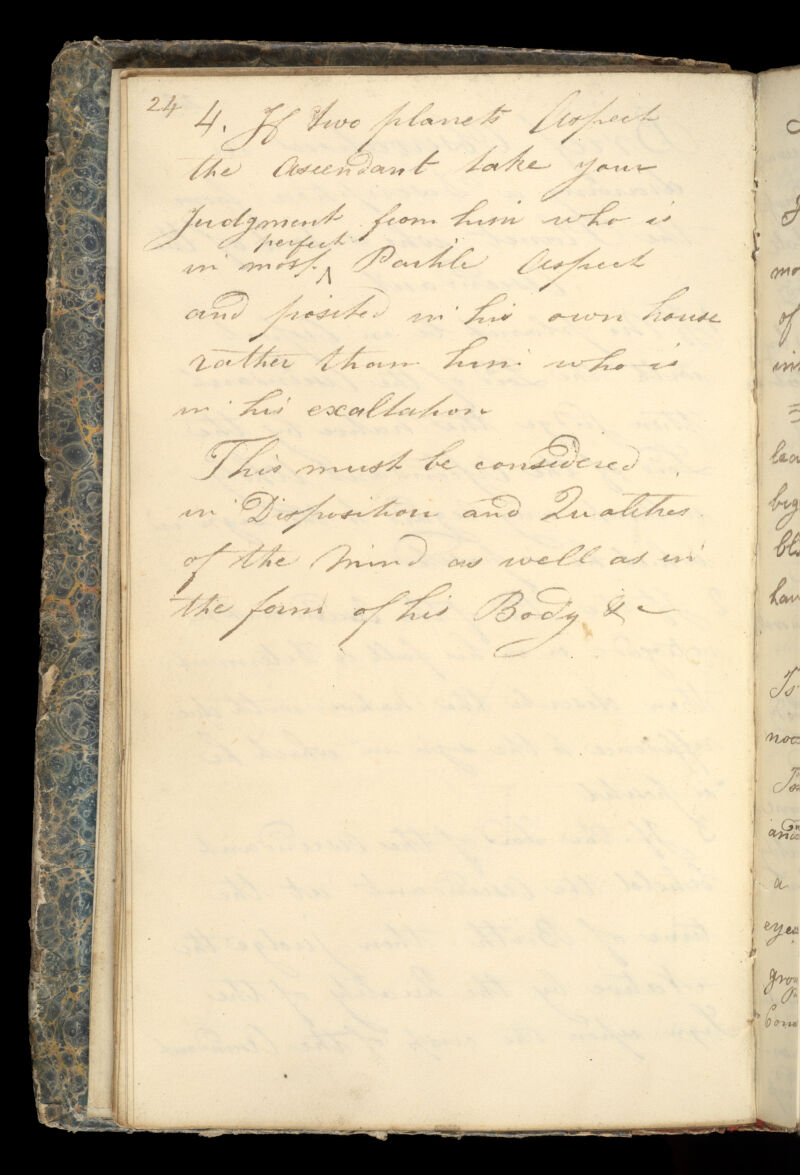 24
4. If two planets Aspect
the Ascendant take your
Judgment from him who is
perfect
in most ^ Partile Aspect
and posited in his own house
rather than him who is
in his exaltation
This must be considered
in Disposition and Qualities
of the Mind as well as in
the form of his Body &c
mo
of
big
Is
and
a